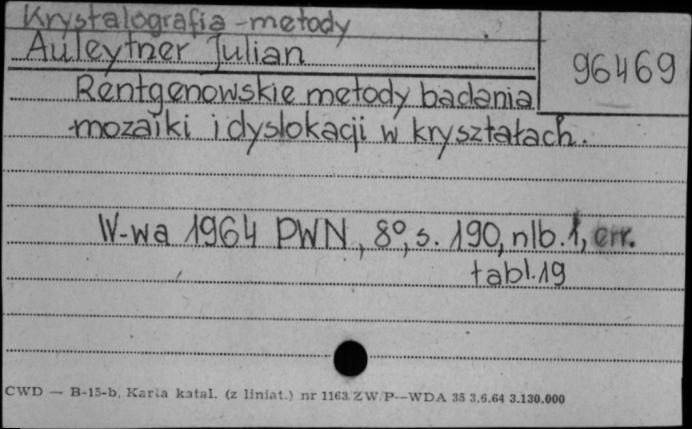 Krystalografia - metody
Auleytner Julian
96469
Rentgenowskie metody badania
mozaiki i dyslokacji w kryształach.
W-wa 1964 PWN, 8°, s. 190, nlb. 1, err.
tabl. 19
CWD — B-15-b, Karta katal. (z liniat.) nr 1163/ZW/P—WDA 35 3.6.64 3.130.000